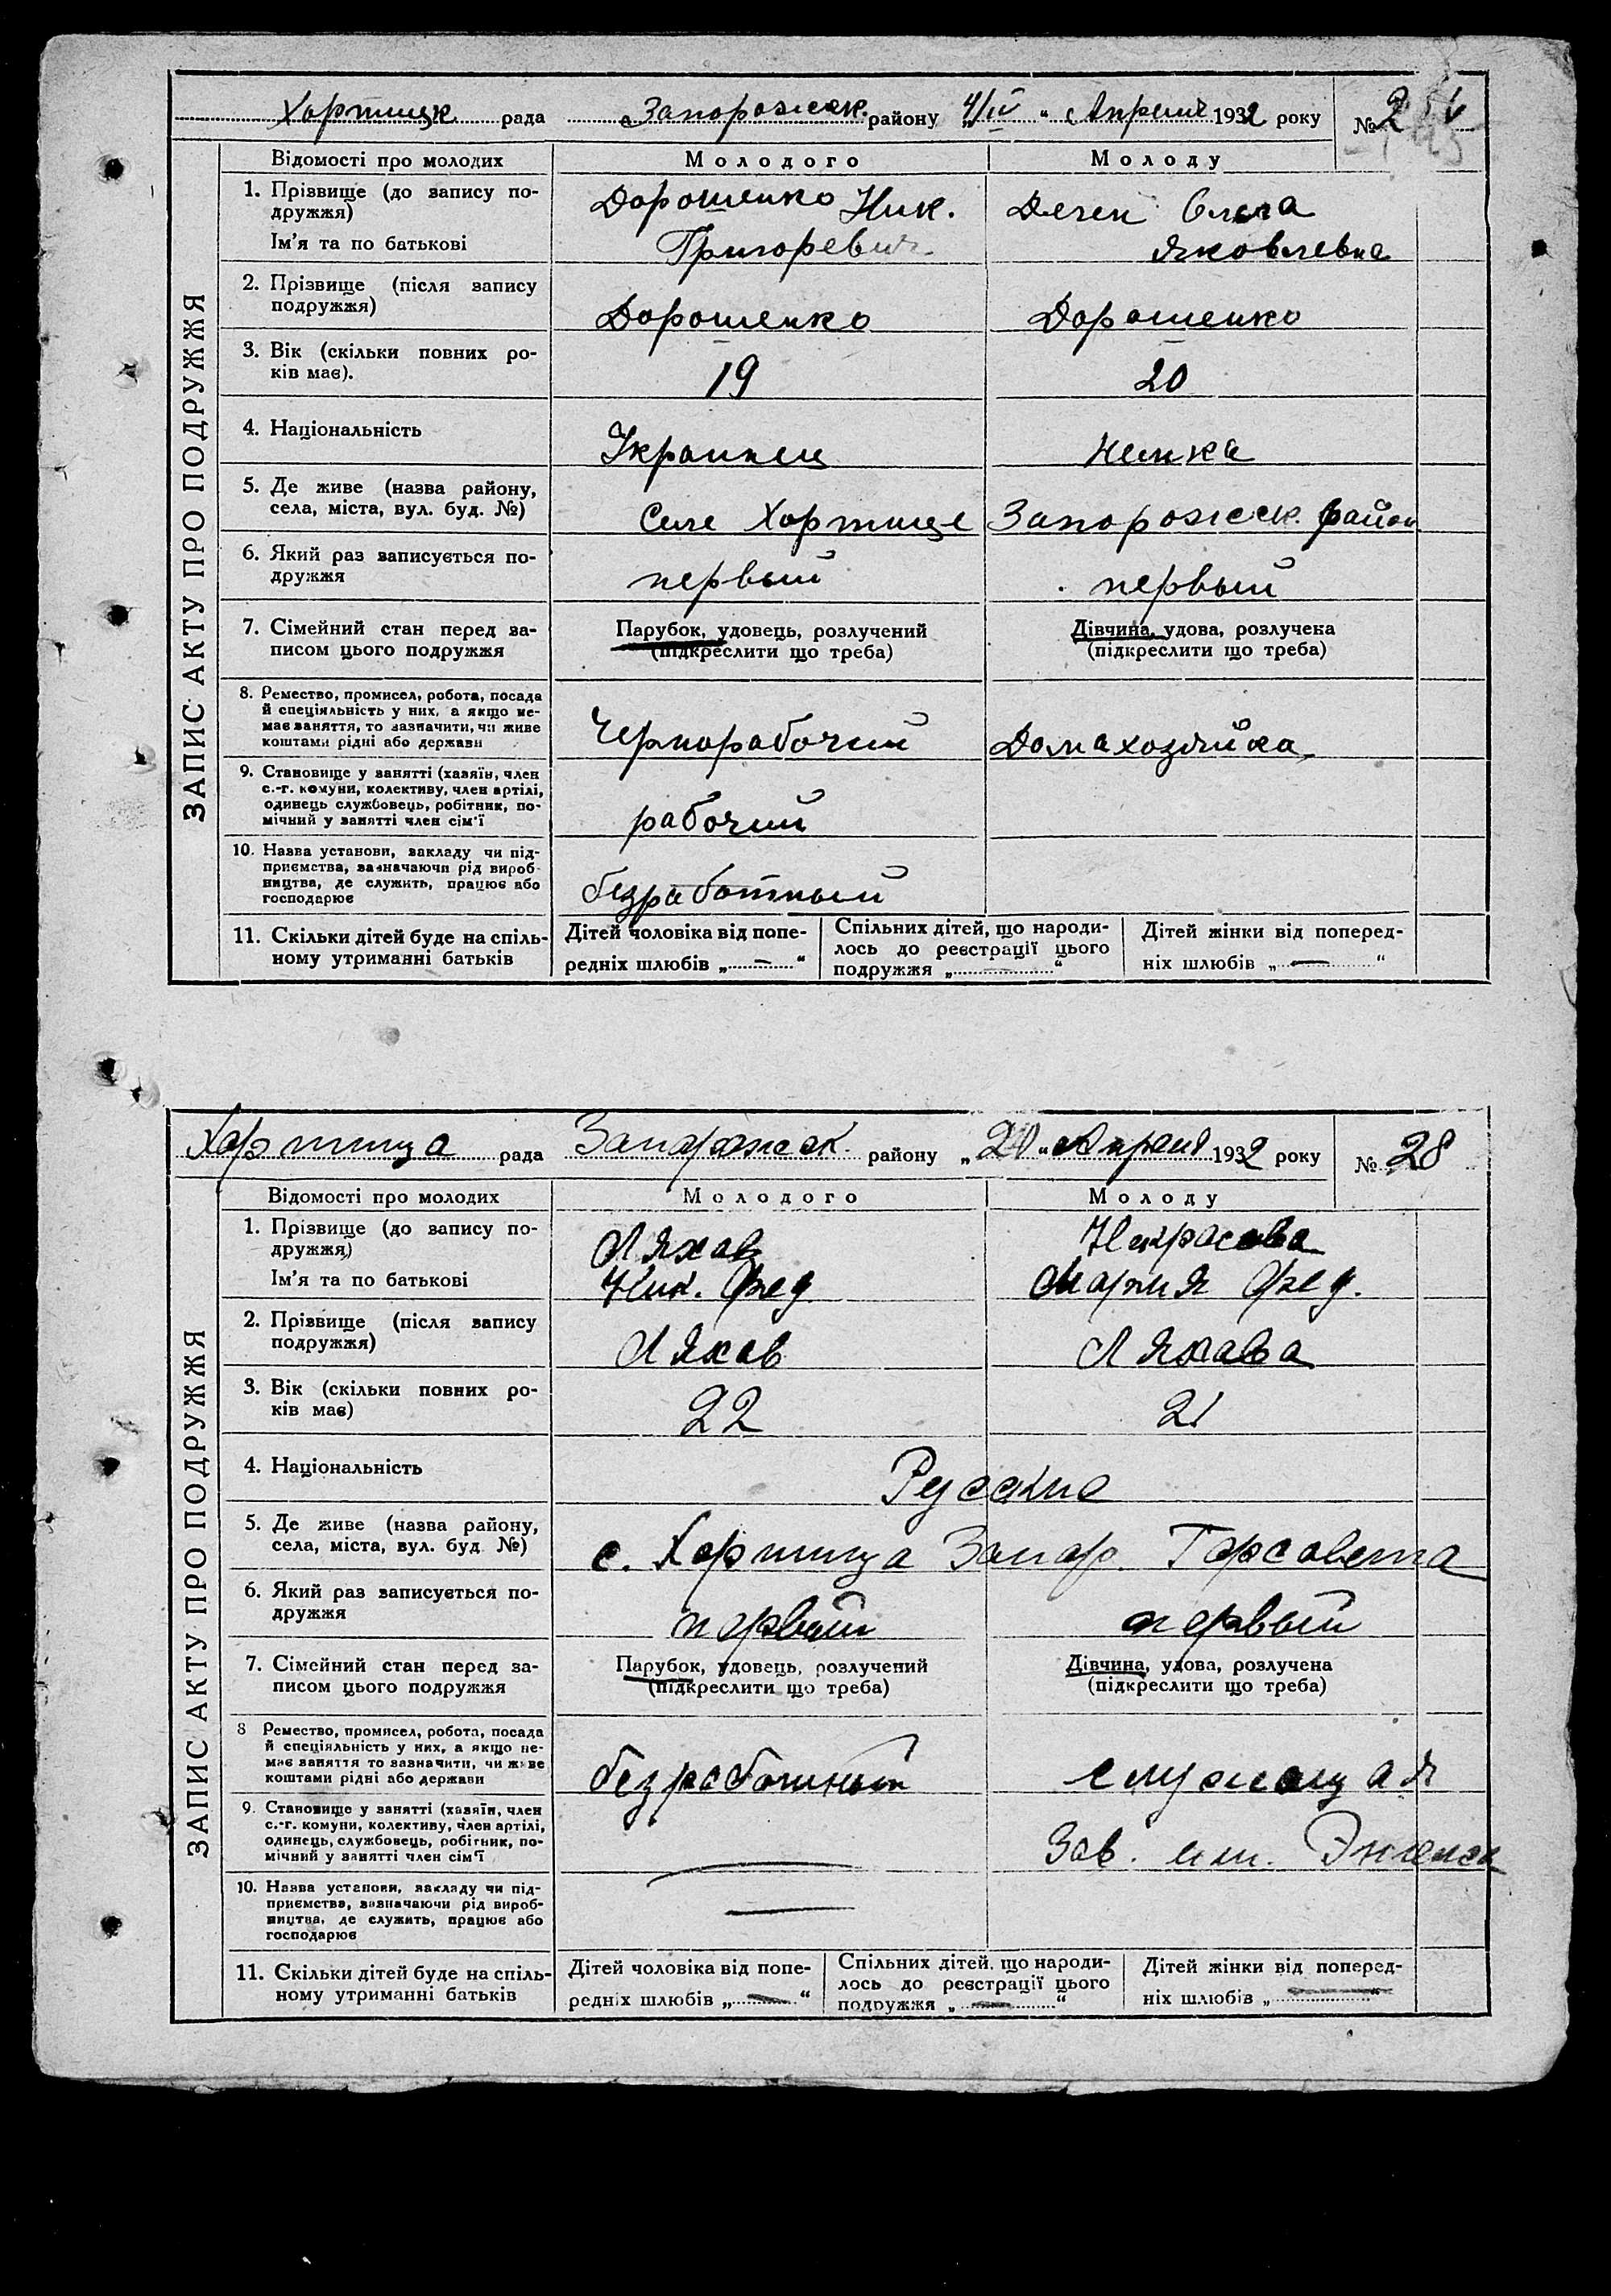 Хортицк рада Запорожск. району „4/IV“ Апреля 1932 року № 2
ЗАПИС АКТУ ПРО ПОДРУЖЖЯ
Відомості про молодих Молодого Молоду
1. Прізвище (до запису по-
дружжя) Дорошенко Ник. Ольга
Ім'я та по батькові Григоревич Яковлевна
2. Прізвище (після запису
подружжя) Дорошенко Дорошенко
3. Вік (скільки повних ро-
ків має). 19 20
4. Національність Украинец Немка
5. Де живе (назва району,
села, міста, вул. буд. №) Селе Хортице Запорожск. район
6. Який раз записується по-
дружжя первый первый
7. Сімейний стан перед за- Парубок, удовець, розлучений Дівчина, удова, розлучека
писом цього подружжя (підкреслити що треба) (підкреслити що треба)
8. Ремество, промисел, робота, посада
й спеціяльність у них, а якщо не-
має заняття, то зазначити, чи живе
коштами рідні або держави Чернорабочий Домахозяйка
9. Становище у занятті (хазяїн, член
с.-г. комуни, колективу, член артілі,
одинець службовець, робітник, по-
мічний у занятті член сім'ї рабочий
10. Назва установи, закладу чи під-
приємства, зазначаючи рід вироб-
ництва, де служить, працює або
господарює безработный
11. Скільки дітей буде на спіль- Дітей чоловіка від попе- Спільних дітей, що народи- Дітей жінки від поперед-
ному утриманні батьків редніх шлюбів „—“ лось до реєстрації цього ніх шлюбів „—“
подружжя „—“
Хортица рада Запорожск. району „20“ Апреля 1932 року № 28
ЗАПИС АКТУ ПРО ПОДРУЖЖЯ
Відомості про молодих Молодого Молоду
1. Прізвище (до запису по-
дружжя) Ляхов Некрасова
Ім'я та по батькові Ник. Фед. Мария Фед.
2. Прізвище (після запису
подружжя) Ляхов Ляхова
3. Вік (скільки повних ро-
ків має) 22 21
4. Національність Русские
5. Де живе (назва району,
села, міста, вул. буд №) с. Хортица Запор. Горсовета
6. Який раз записується по-
дружжя первый первый
7. Сімейний стан перед за- Парубок, удовець, розлучений Дівчина, удова, розлучена
писом цього подружжя (підкреслити що треба) (підкреслити що треба)
8 Ремество, промисел, робота, посада
й спеціяльність у них, а якщо не-
має заняття то зазначити, чи живе
коштами рідні або держави безработный служащая
9. Становище у занятті (хазяїн, член
с.-г. комуни, колективу, член артілі,
одинець, службовець, робітник, по-
мічний у занятті член сім'ї — Зав. им. Энгельса
10. Назва установи, закладу чи під-
приємства, зазначаючи рід вироб-
ництва, де служить, працює або
господарює —
11. Скільки дітей буде на спіль- Дітей чоловіка від попе- Спільних дітей, що народи- Дітей жінки від поперед-
ному утриманні батьків редніх шлюбів „—“ лось до реєстрації цього ніх шлюбів „—“
подружжя „—“